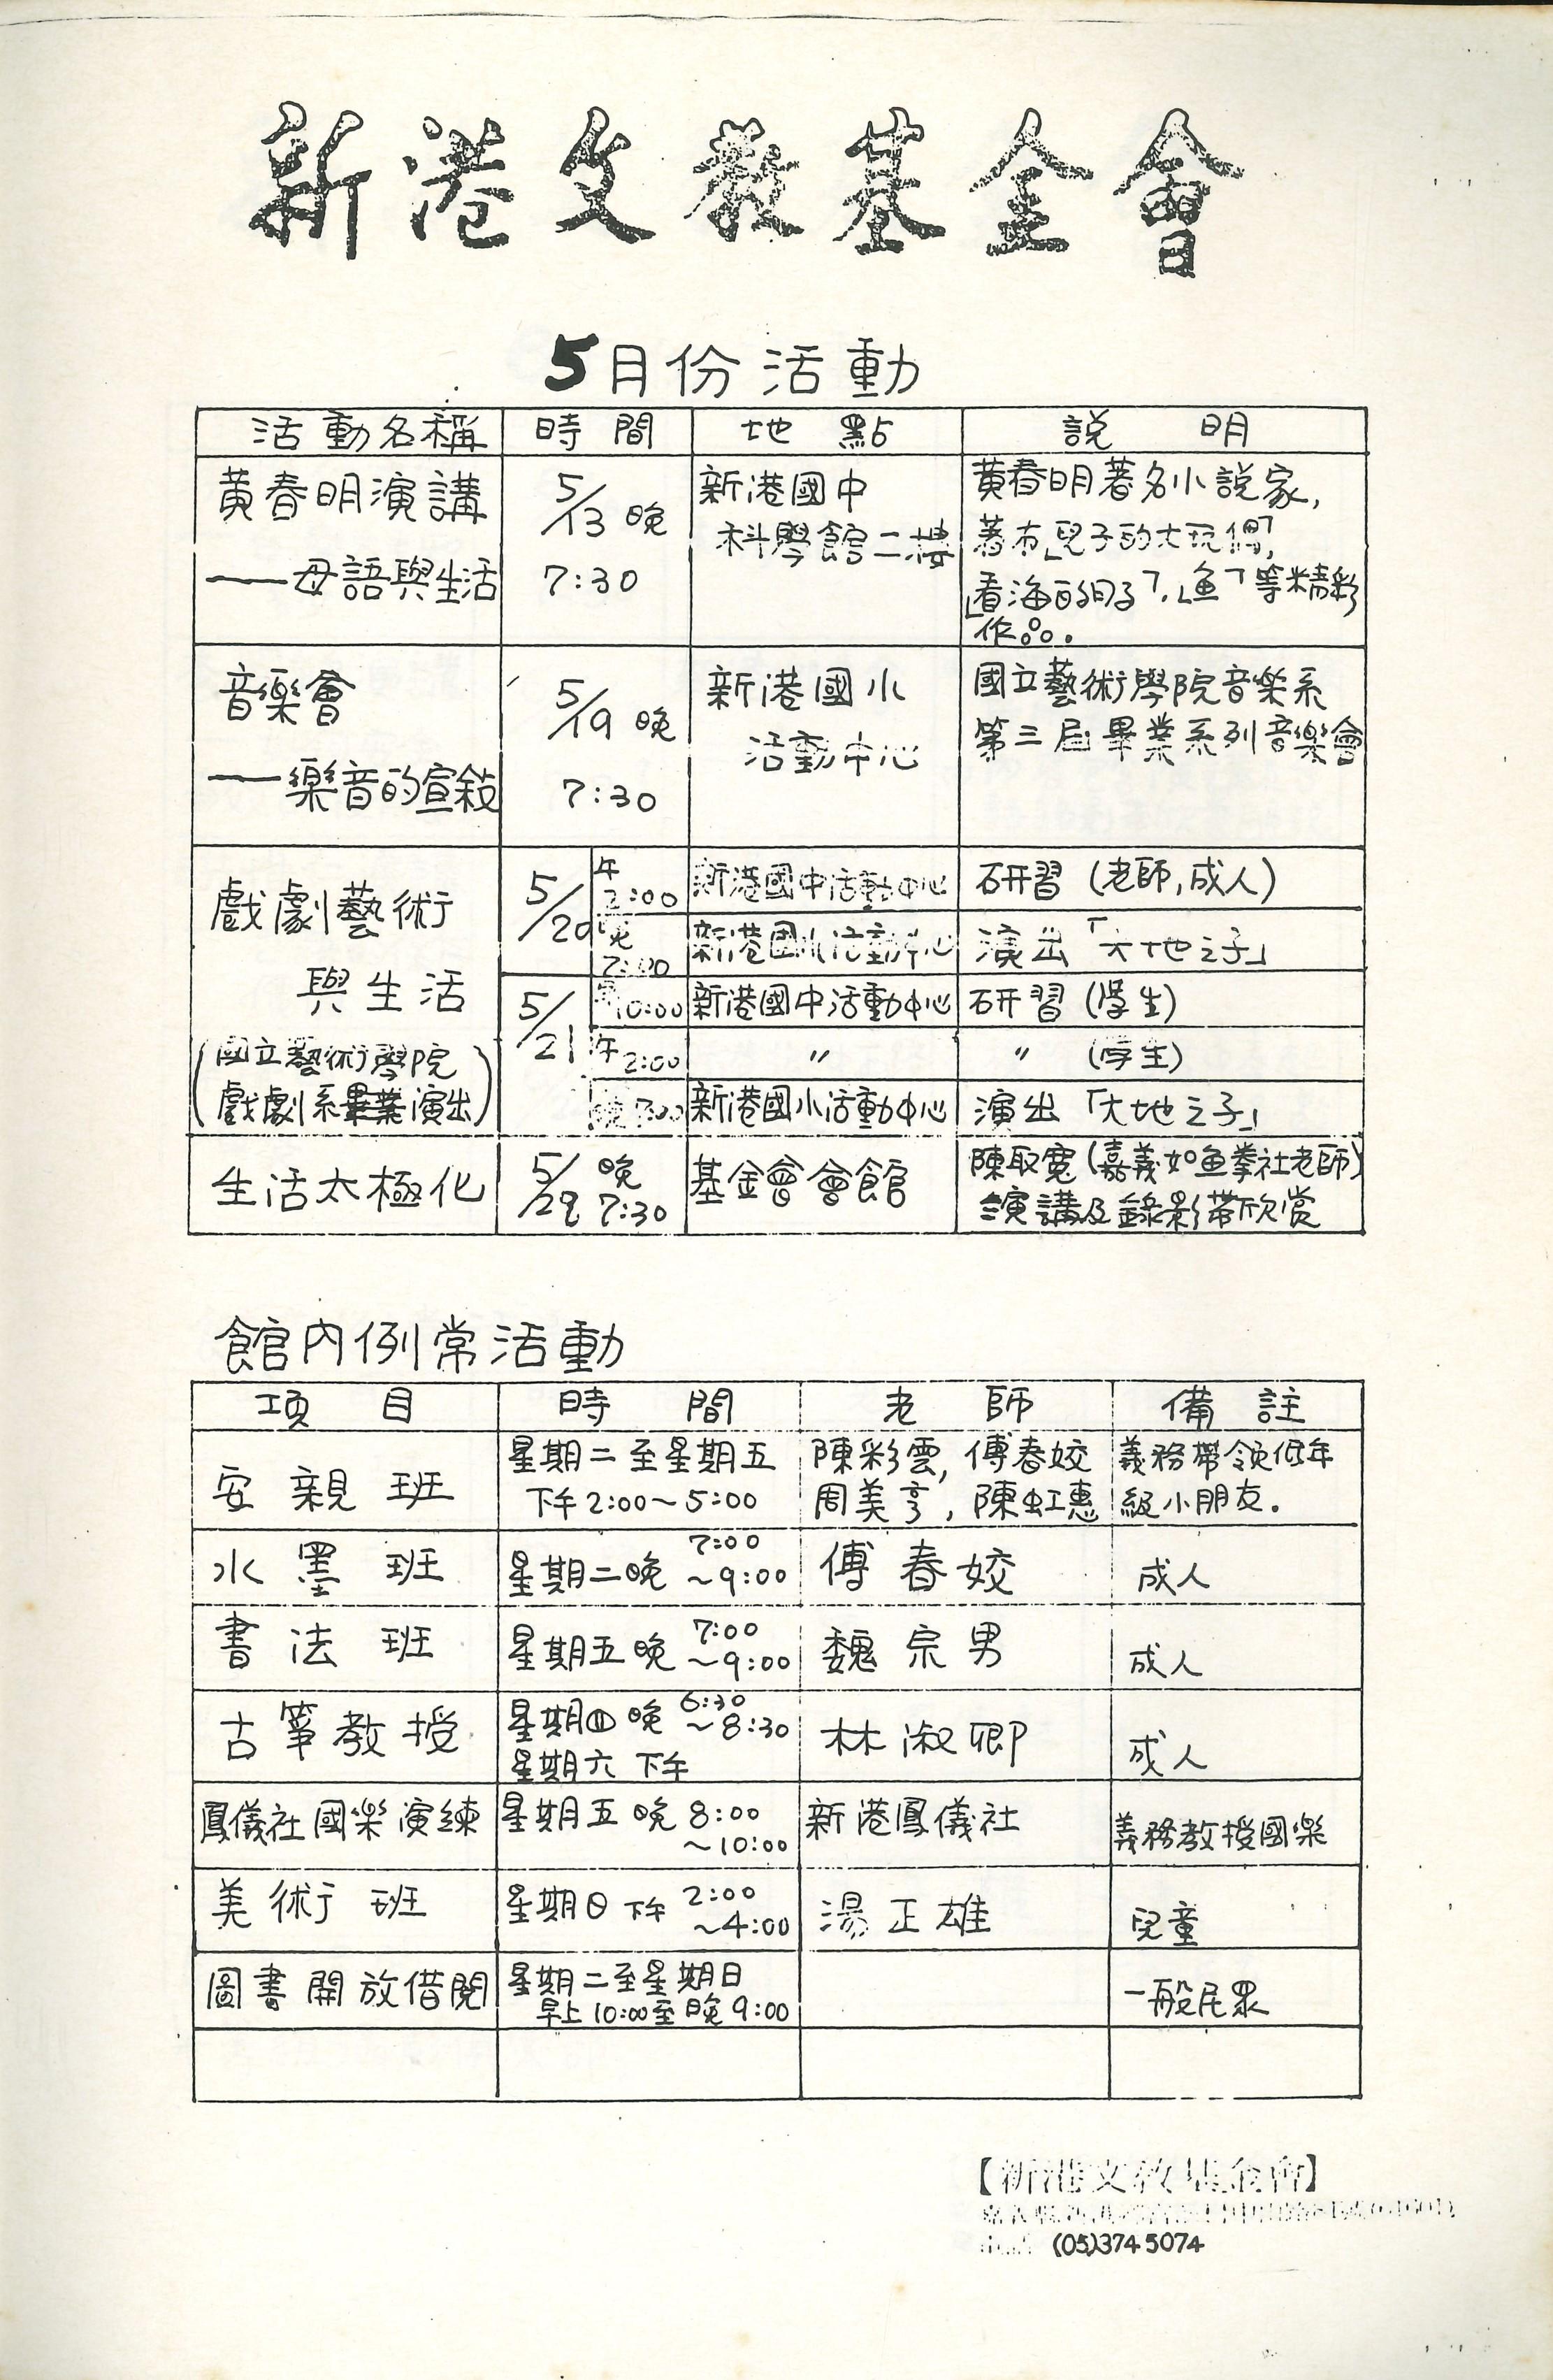 新港文教基金會
5月份活動
活動名稱 時間 地點 説明
黃春明演講 5/13 晚 新港國中 黃春明著名小説家,
——母語與生活 7:30 科學館二樓 著有「兒子的大玩偶」,
「看海的日子」,「魚」等精彩
作品.
音樂會 5/19 晚 新港國小 國立藝術學院音樂系
——樂音的宣敍 7:30 活動中心 第三屆畢業系列音樂會
戲劇藝術 5/20 午2:00 新港國中活動中心 研習 (老師,成人)
晚7:00 新港國小活動中心 演出「大地之子」
與生活 5/21 10:00 新港國中活動中心 研習 (學生)
(國立藝術學院 午2:00 〃 〃 (學生)
戲劇系畢業演出) 晚7:00 新港國小活動中心 演出「大地之子」
生活太極化 5/29 晚7:30 基金會會館 陳取寬(嘉義如魚拳社老師)
演講及錄影帶欣賞
館內例常活動
項目 時間 老師 備註
安親班 星期二至星期五 陳彩雲, 傅春姣 義務帶領低年
下午2:00~5:00 周美亨, 陳虹惠 級小朋友.
水墨班 星期二晚 7:00~9:00 傅春姣 成人
書法班 星期五晚 7:00~9:00 魏宗男 成人
古箏教授 星期四晚 6:30~8:30 林淑卿 成人
星期六 下午
鳳儀社國樂演練 星期五晚 8:00~10:00 新港鳳儀社 義務教授國樂
美術班 星期日下午 2:00~4:00 湯正雄 兒童
圖書開放借閱 星期二至星期日 一般民眾
早上10:00至晚9:00
【新港文教基金會】
(05)3745074